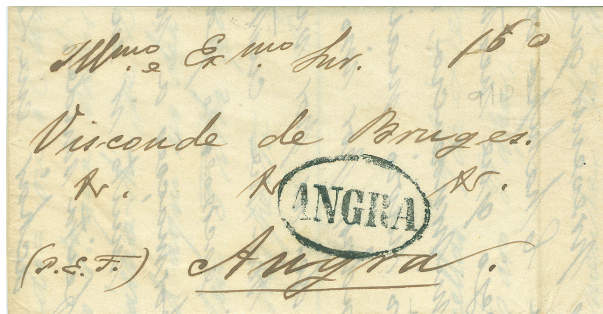 Illmo e Exmo Snr. 160
9/12
Visconde de Bruges.
&. &. &.
ANGRA
(P.E.F.) Angra.